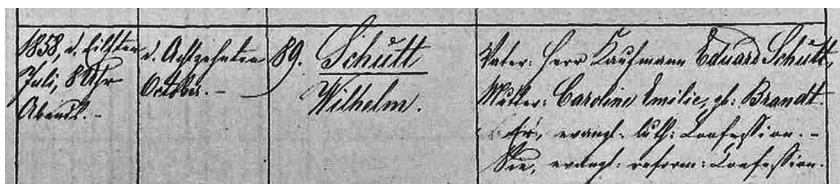 1858, d. Eilften
Juli, 8 Uhr
Abends. -
d. Achtzehnten
October. -
89.
Schütt
Wilhelm.
Vater: Herr Kaufmann Eduard Schütt,
Mutter: Caroline Emilie, gb: Brandt.
Er, evangl: luth: Confession. -
Sie, evangl: reform: Confession.